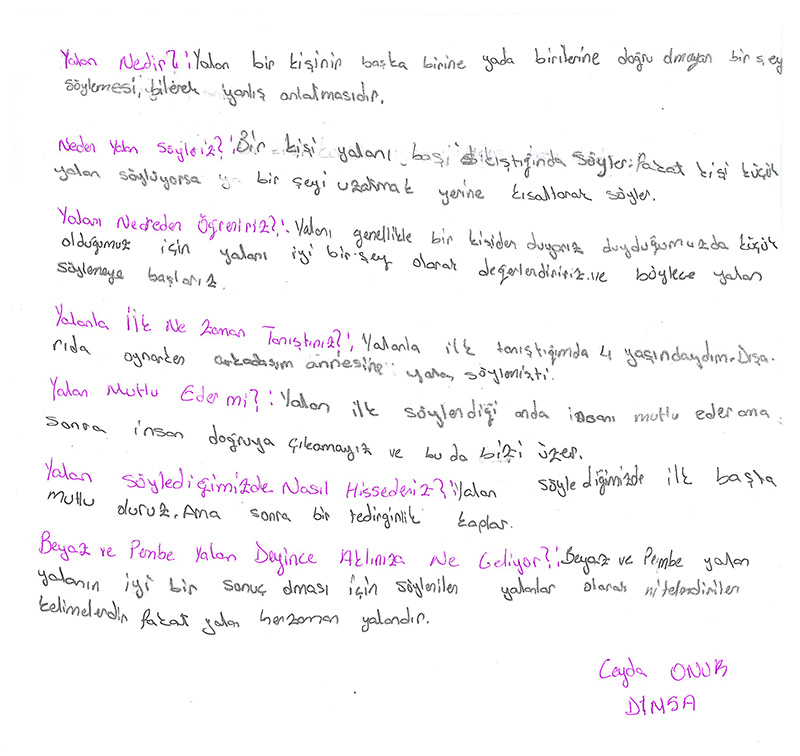 Yalan Nedir?: Yalan bir kişinin başka birine yada birilerine doğru olmayan bir şey
söylemesi, bilerek yanlış anlatmasıdır.
Neden Yalan Söyleriz?: Bir kişi yalanı başı sıkıştığında söyler. Fakat kişi küçük
yalan söylüyorsa bir şeyi uzatmak yerine kısaltarak söyler.
Yalanı Nereden Öğreniriz?: Yalanı genellikle bir kişiden duyarız duyduğumuzda küçük
olduğumuz için yalanı iyi bir şey olarak değerlendiririz ve böylece yalan
söylemeye başlarız.
Yalanla İlk Ne Zaman Tanıştınız?: Yalanla ilk tanıştığımda 4 yaşındaydım. Dışa-
rıda oynarken arkadaşım annesine yalan söylemişti.
Yalan Mutlu Eder mi?: Yalan ilk söylendiği anda insanı mutlu eder ama
sonra insan doğruya çıkamayız ve bu da bizi üzer.
Yalan Söylediğimizde Nasıl Hissederiz?: Yalan söylediğimizde ilk başta
mutlu oluruz. Ama sonra bir tedirginlik kaplar.
Beyaz ve Pembe Yalan Deyince Aklınıza Ne Geliyor?: Beyaz ve Pembe yalan
yalanın iyi bir sonuç olması için söylenilen yalanlar olarak nitelendirilen
kelimelerdir fakat yalan herzaman yalandır.
Ceyda ONUR